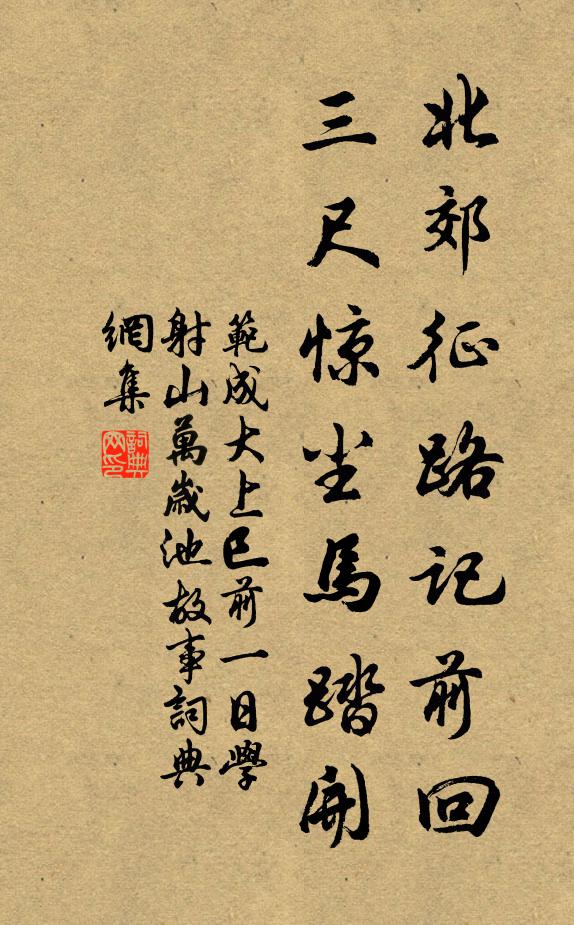 北郊征路记前回
三尺惊尘马踏开
範成大上巳前一日學
射山萬歲池故事詞典
網集
詞典網印